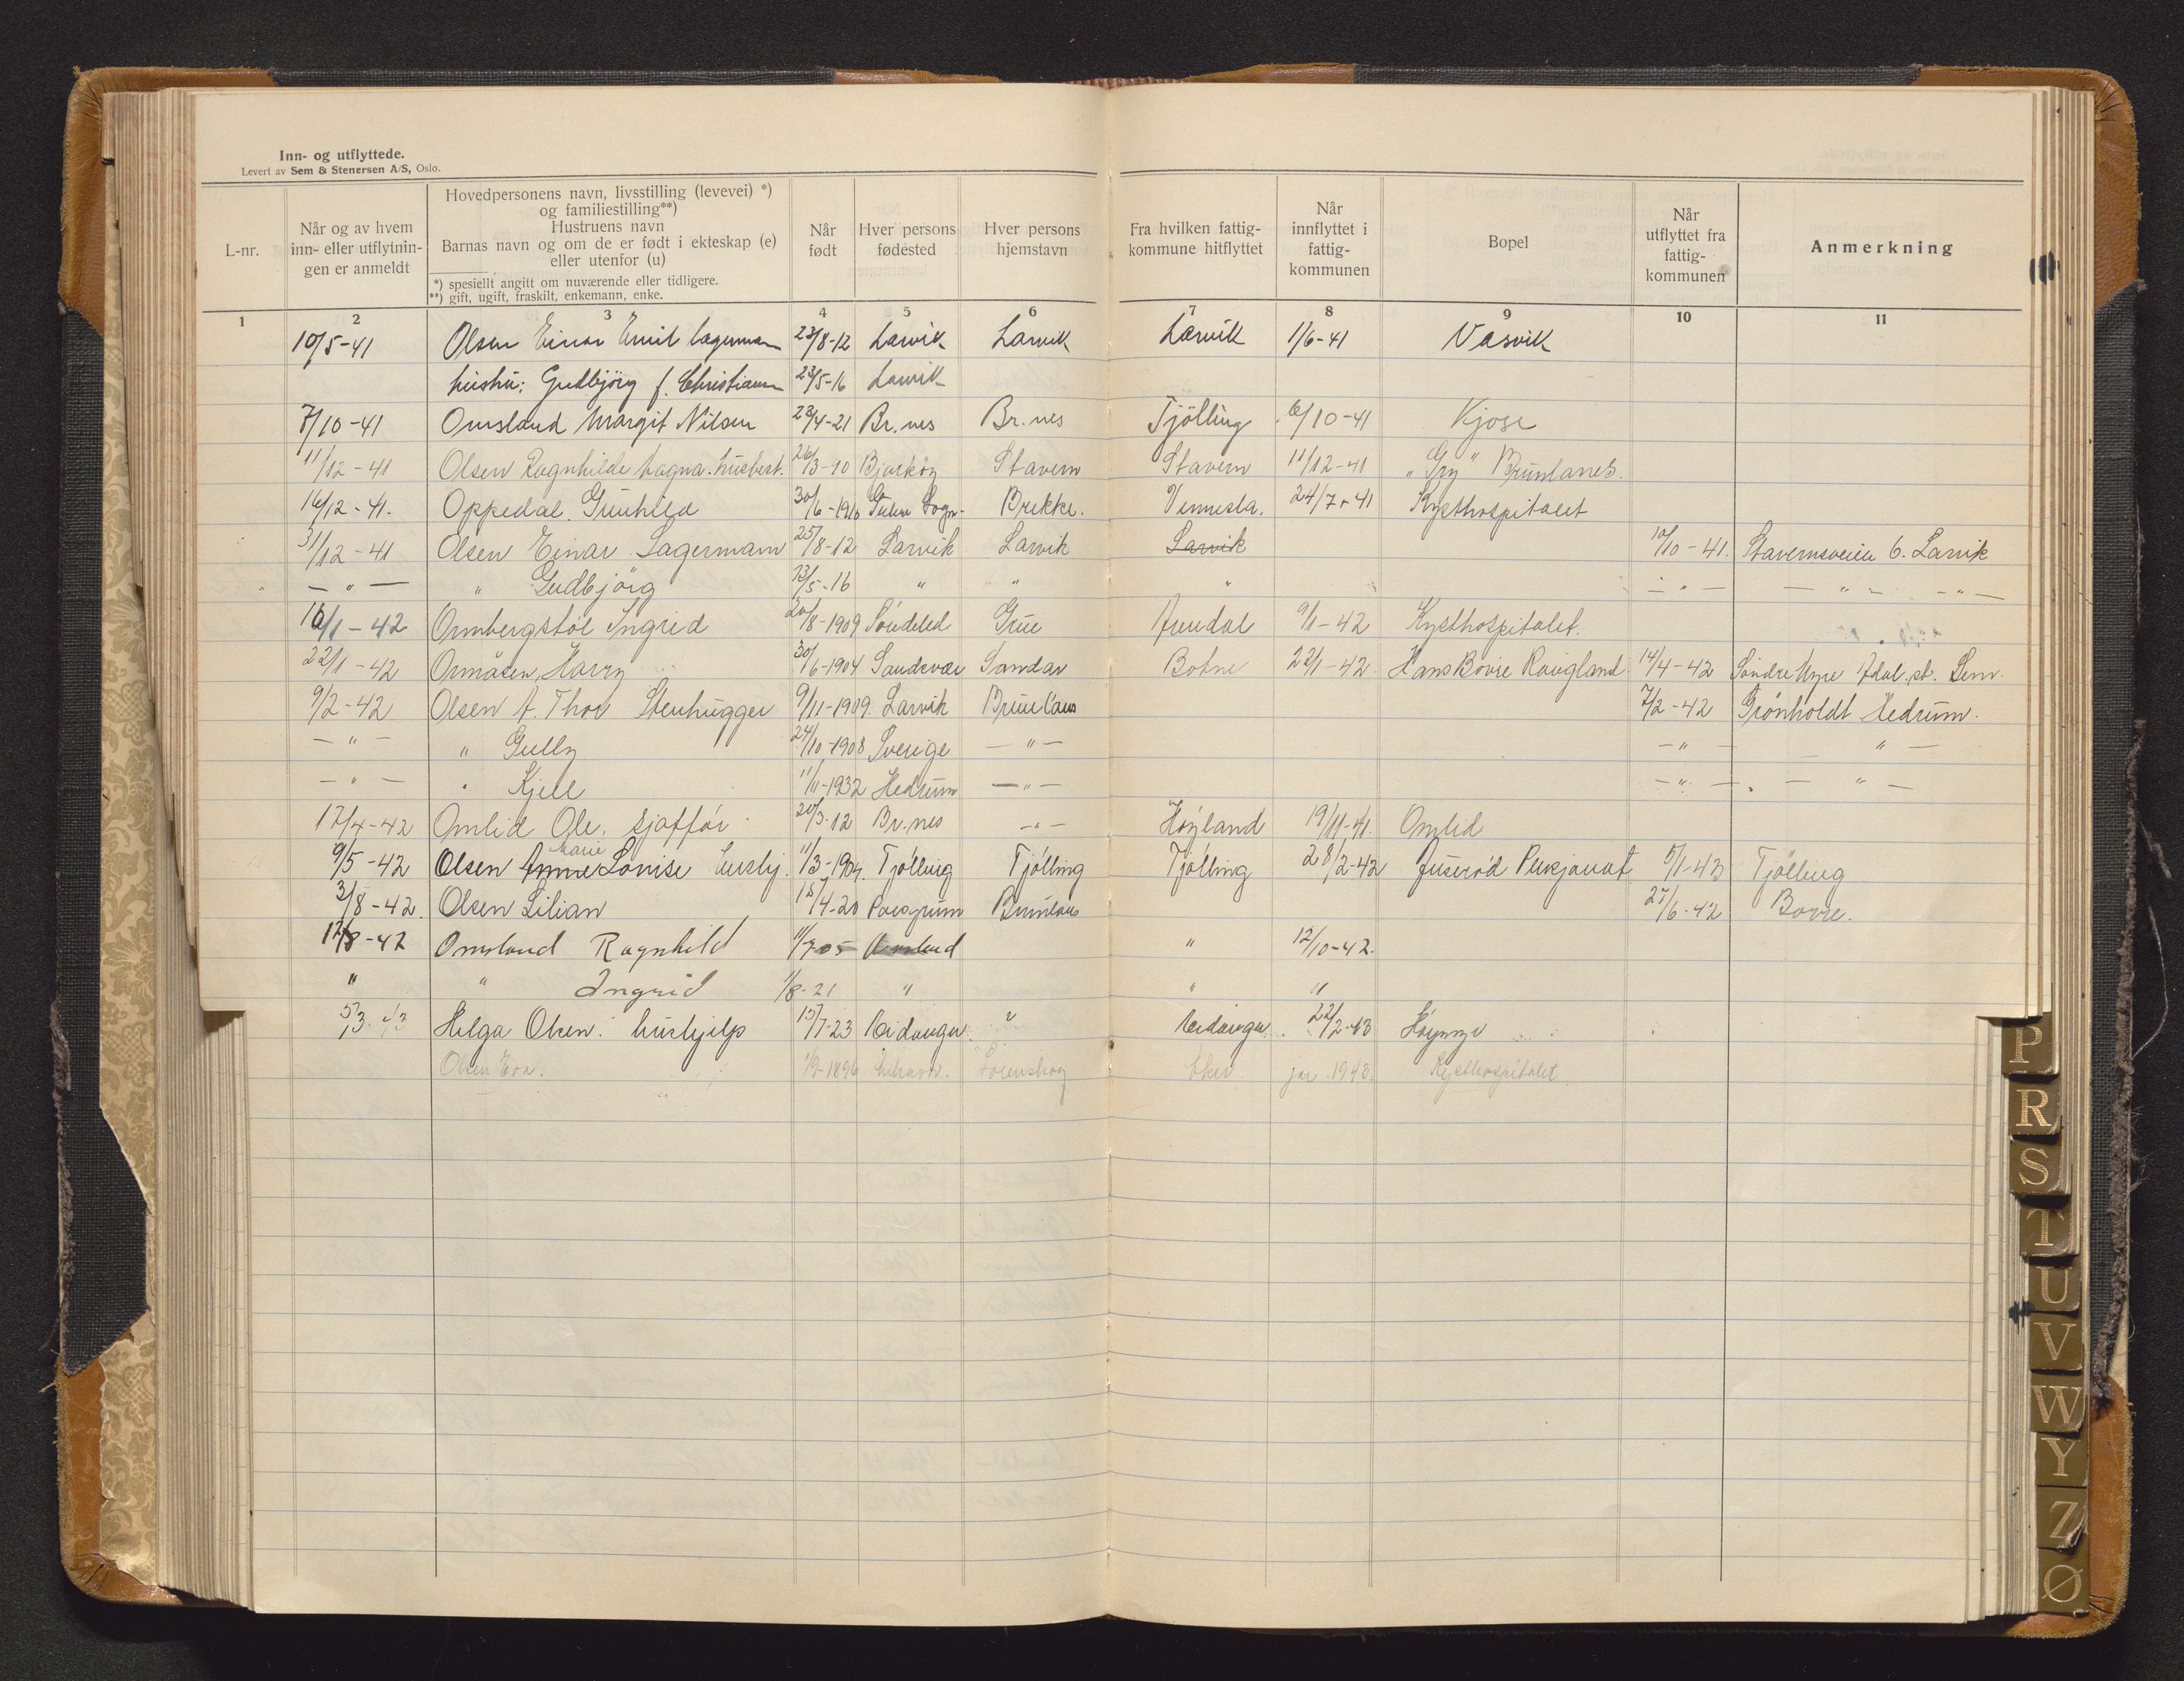 Inn- og utflyttede.
Levert av Sem & Stenersen A/S, Oslo.
L-nr. Når og av hvem inn- eller utflytningen er anmeldt Hovedpersonens navn, livsstilling (levevei) *) og familiestilling**) Hustruens navn Barnas navn og om de er født i ekteskap (e) eller utenfor (u) *) spesiellt angitt om nuværende eller tidligere. **) gift, ugift, fraskilt, enkemann, enke. Når født Hver persons fødested Hver persons hjemstavn Fra hvilken fattigkommune hitflyttet Når innflyttet i fattigkommunen Bopel Når utflyttet fra fattigkommunen Anmerkning
1 2 3 4 5 6 7 8 9 10 11
10/5-41 Olsen Einar Emil lagerman 23/8-12 Larvik Larvik Larvik 1/6-41 Vasvik
hustru: Gudbjörg f. Christiansen 23/5-16 Larvik
7/10-41 Omsland Margit Nilsen 23/4-21 Br.nes Br.nes Tjölling 6/10-41 Kjose
11/12-41 Olsen Ragnhilde Magna. husbest. 26/3-10 Bjarköy Stavern Stavern 11/12-41 "Gry" Brunlanes.
16/12-41. Oppedal. Gunhild 30/6-1916 Gulen Sogn. Brekke. Vennesla. 24/7-41 Kysthospitalet
31/12-41 Olsen Einar Lagermann 23/8-12 Larvik Larvik Larvik 10/10-41. Stavernsveien 6. Larvik
— " — " Gudbjörg 23/5-16 " " " — " — — " — — " —
10/1-42 Ormbergstöl Ingrid 20/8-1909 Söndeled Grue Arendal 9/1-42 Kysthospitalet.
22/1-42 Ormåsen, Harry 30/6-1904 Sandsvær Sandar Botne 22/1-42. Hans Bovre Rougland 14/4-42 Söndre Myre Adal. st. Sem.
9/2-42 Olsen A. Thor Stenhugger 9/11-1909. Larvik Brunlanes 7/2-42 Grönholdt Hedrum.
— " — " Gully 24/10-1908 Sverige — " — — " — " —
— " — " Kjell 11/11-1932 Hedrum — " — — " — — " —
17/4-42 Omlid Ole. sjafför 20/3-12 Br.nes — " — Höyland 19/11-41. Omlid
9/5-42 Olsen Anne Marie Lovise hushj. 11/3-1904. Tjölling Tjölling Tjölling 28/2-42 5/1-43 Tjölling
3/8-42. Olsen Lilian 15/4-20 Porsgrunn Brunlanes 27/6-42 Bovre.
12/8-42 Omsland Ragnhild 11/7-05 Omland " 12/10-42.
" " Ingrid 1/8-21 " " "
5/3. 43 Helga Olsen. hushjelp 15/7-23 Eidanger " Eidanger. 22/2-43
Olsen Eva. 1/9-1896 Lörenskog jan. 1943. Kysthospitalet
P
R
S
T
U
V
W
Y
Z
Ø